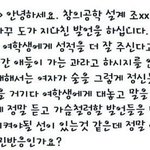 안녕하세요. 창의공학 설계 조xx
구 도가 지나친 발언을 하십니다.
여학생에게 성적을 더 잘 주신다고
간 애들이 가는 과라고 하시지를 않
해서는 여자가 술을 그렇게 정신못
을 거기다 여학생에게 대놓고 말을
에 정말 듣고 가슴철렁할 발언들을
지켜야될 선이 있는것 같은데 정말
민반응인가요?